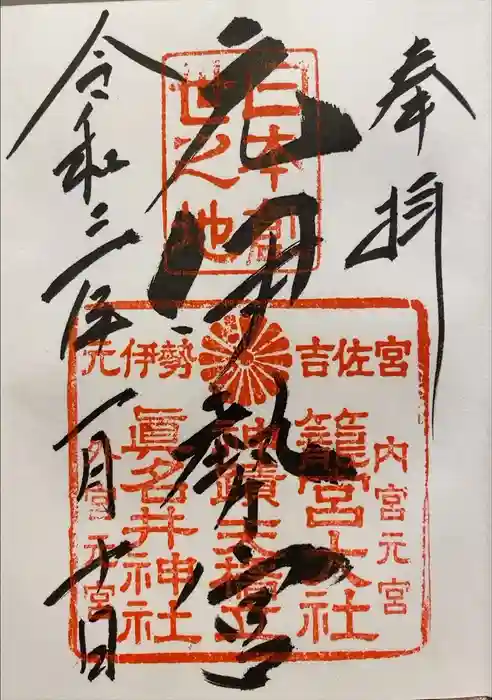 奉拝
日本創
世之地
元伊勢宮
元伊勢 吉佐宮
内宮元宮
籠宮大社
神蹟天橋立
眞名井神社
外宮元宮
令和三年一月十日